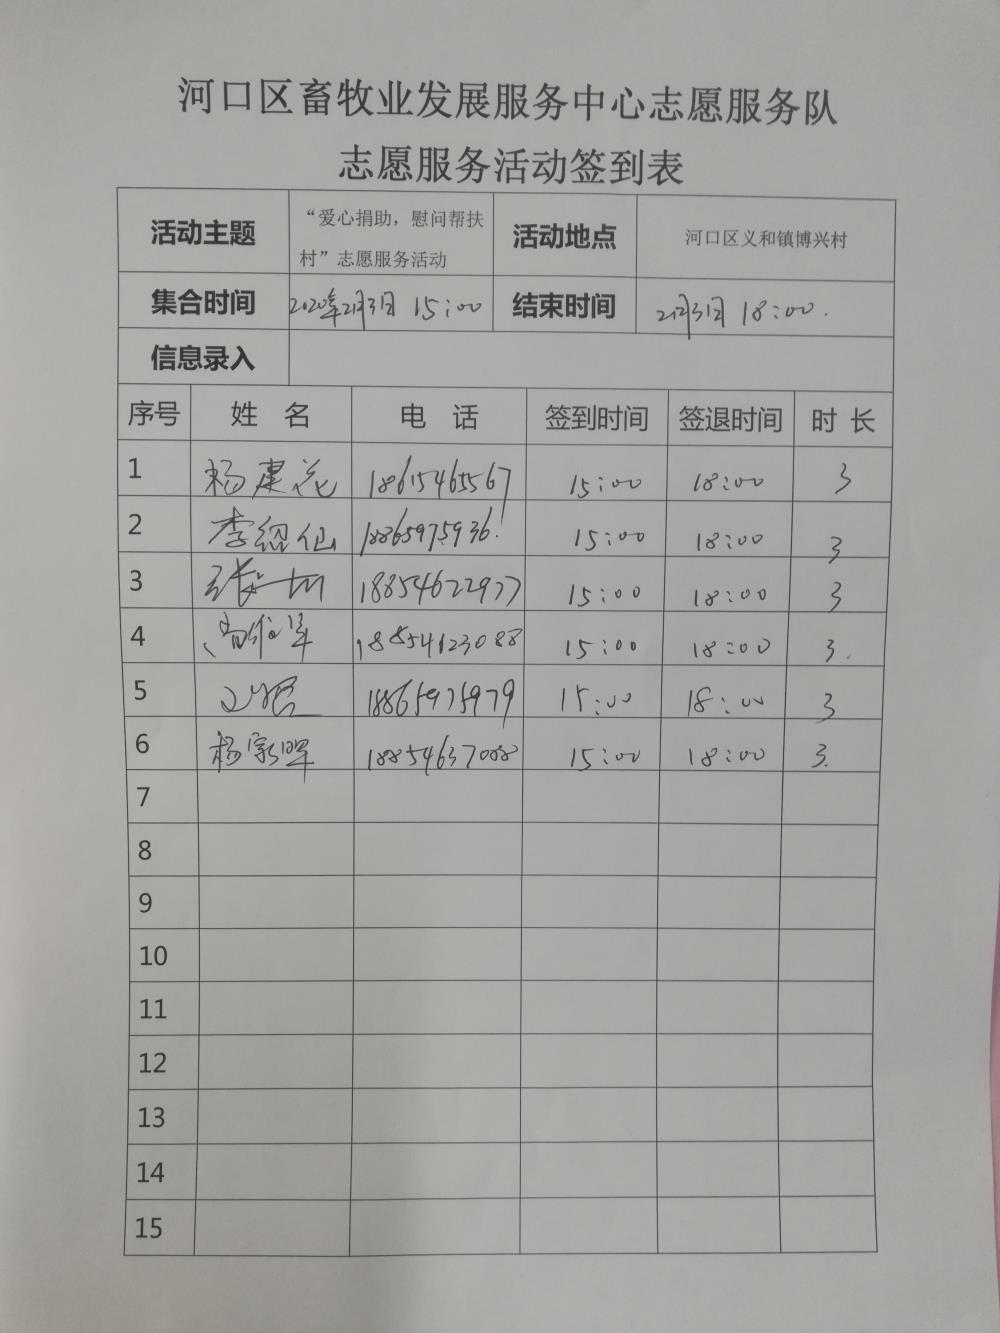 河口区畜牧业发展服务中心志愿服务队
志愿服务活动签到表
活动主题 “爱心捐助，慰问帮扶村”志愿服务活动 活动地点 河口区义和镇博兴村
集合时间 2020年2月3日 15:00 结束时间 2月3日 18:00.
信息录入
序号 姓 名 电 话 签到时间 签退时间 时 长
1 杨建花 18615465567 15:00 18:00 3
2 李绍仙 18865975936. 15:00 18:00 3
3 18854622977 15:00 18:00 3
4 18854123088 15:00 18:00 3.
5 18865975979 15:00 18:00 3
6 杨家晖 18854637088 15:00 18:00 3.
7
8
9
10
11
12
13
14
15